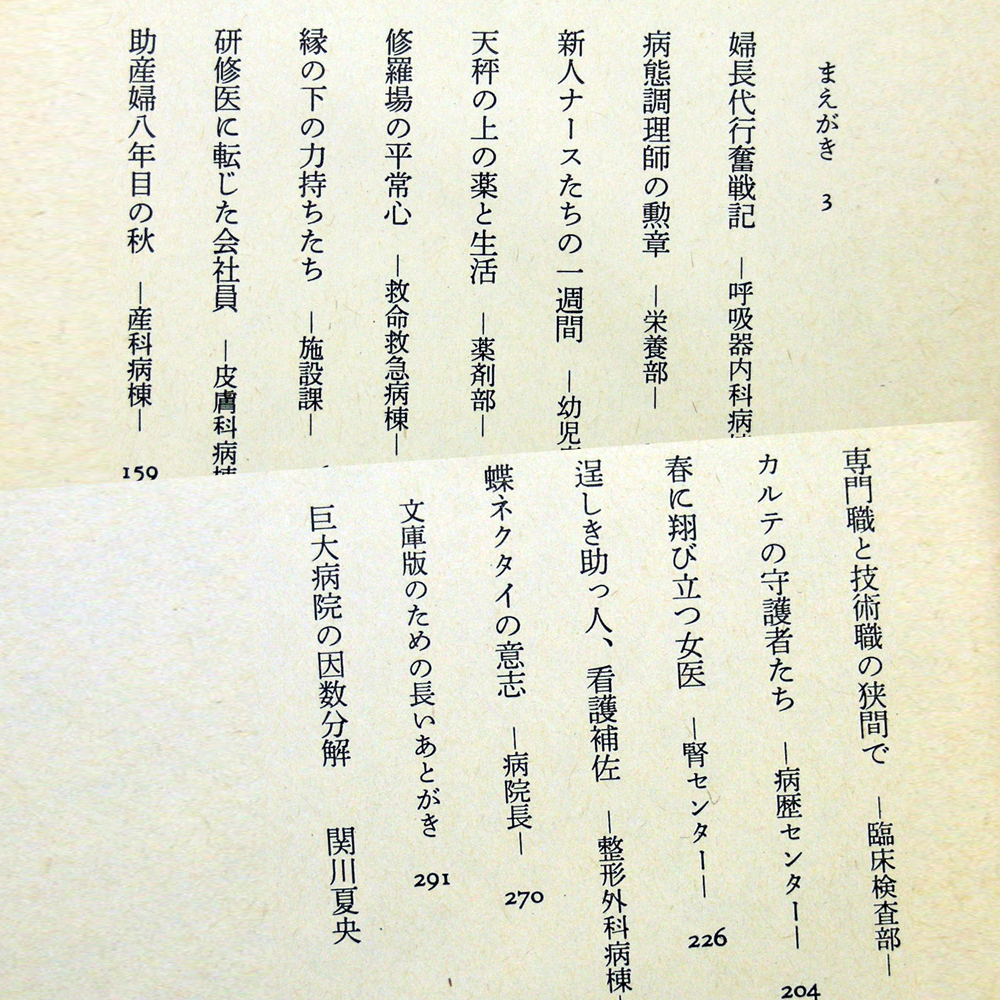 まえがき 3
婦長代行奮戦記 ―呼吸器内科病
病態調理師の勲章 ―栄養部―
新人ナースたちの一週間 ―幼児
天秤の上の薬と生活 ―薬剤部―
修羅場の平常心 ―救命救急病棟―
縁の下の力持ちたち ―施設課―
研修医に転じた会社員 ―皮膚科病
助産婦八年目の秋 ―産科病棟― 159
専門職と技術職の狭間で ―臨床検査部―
カルテの守護者たち ―病歴センター― 204
春に翔び立つ女医 ―腎センター― 226
逞しき助っ人、看護補佐 ―整形外科病棟―
蝶ネクタイの意志 ―病院長― 270
文庫版のための長いあとがき 291
巨大病院の因数分解 関川夏央